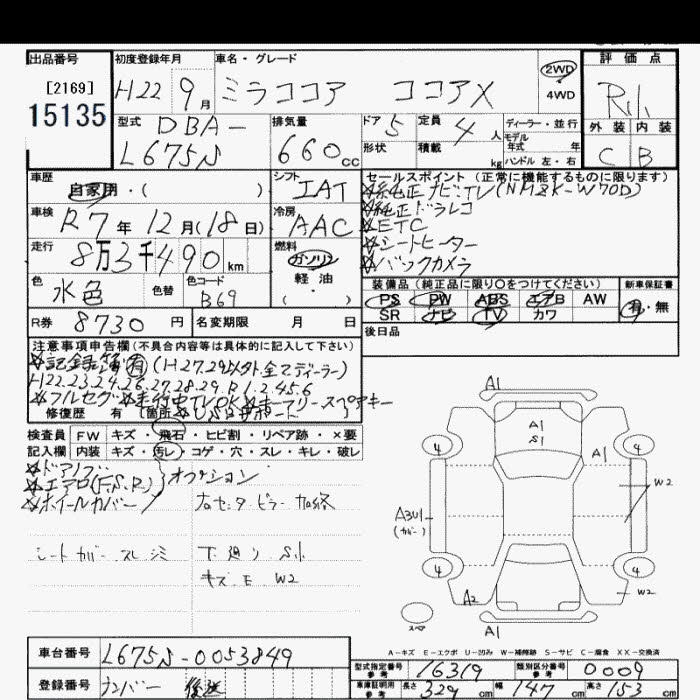 出品番号 初度登録年月 車名・グレード 評価点
[2169]
15135
H22 9月 ミラココア ココアX 2WD 4WD
外装 内装
C B
型式 DBA-
L675S
排気量 660cc
ドア 5 定員 4人
形状 積載 kg
ディーラー・並行
モデル年式 年
ハンドル 左・右
車歴 自家用・( )
シフト IAT
セールスポイント(正常に機能するものに限ります)
☆純正ナビTV(NMZK-W70D)
☆純正ドラレコ
☆ETC
☆シートヒーター
☆バックカメラ
車検 R7年12月(18日)
冷房 AAC
走行 8万3千490km
燃料 ガソリン 軽油 ・( )
色 水色 色替 色コード B69
装備品(純正品に限り○をつけてください) 新車保証書
PS PW ABS エアB AW 有・無
SR ナビ TV カワ
R券 8730円 名変期限 月 日
後日品
注意事項申告欄(不具合内容等は具体的に記入して下さい)
☆記録簿有(H27.29以外全てディーラー)
H22.23.24.26.27.28.29.R1.2.4.5.6
☆フルセグ ☆走行中TVOK ☆キーフリースペアキー
修復歴 有 (箇所 ☆USBサポート )
検査員 FW キズ・飛石・ヒビ割・リペア跡・×要
記入欄 内装 キズ・汚レ・コゲ・穴・スレ・キレ・破レ
☆ドアノブ
☆エアロ(F.S.R) オプション
☆ホイールカバー
右センターピラー 加修
シートカバー スレ シミ
下廻り S小
キズ E W2
A1
A1
S1
A1
4 4
W2
A3U1
(カバー)
4 4
A2 W2
スペア A1
A-キズ E-エクボ U-凹み W-補修跡 S-サビ C-腐食 XX-交換済
車台番号 L675S-0053849
型式指定番号 参考 16319 類別区分番号 参考 0009
登録番号 ナンバー 後送
車庫証明用 参考 長さ 329cm 幅 147cm 高さ 153cm